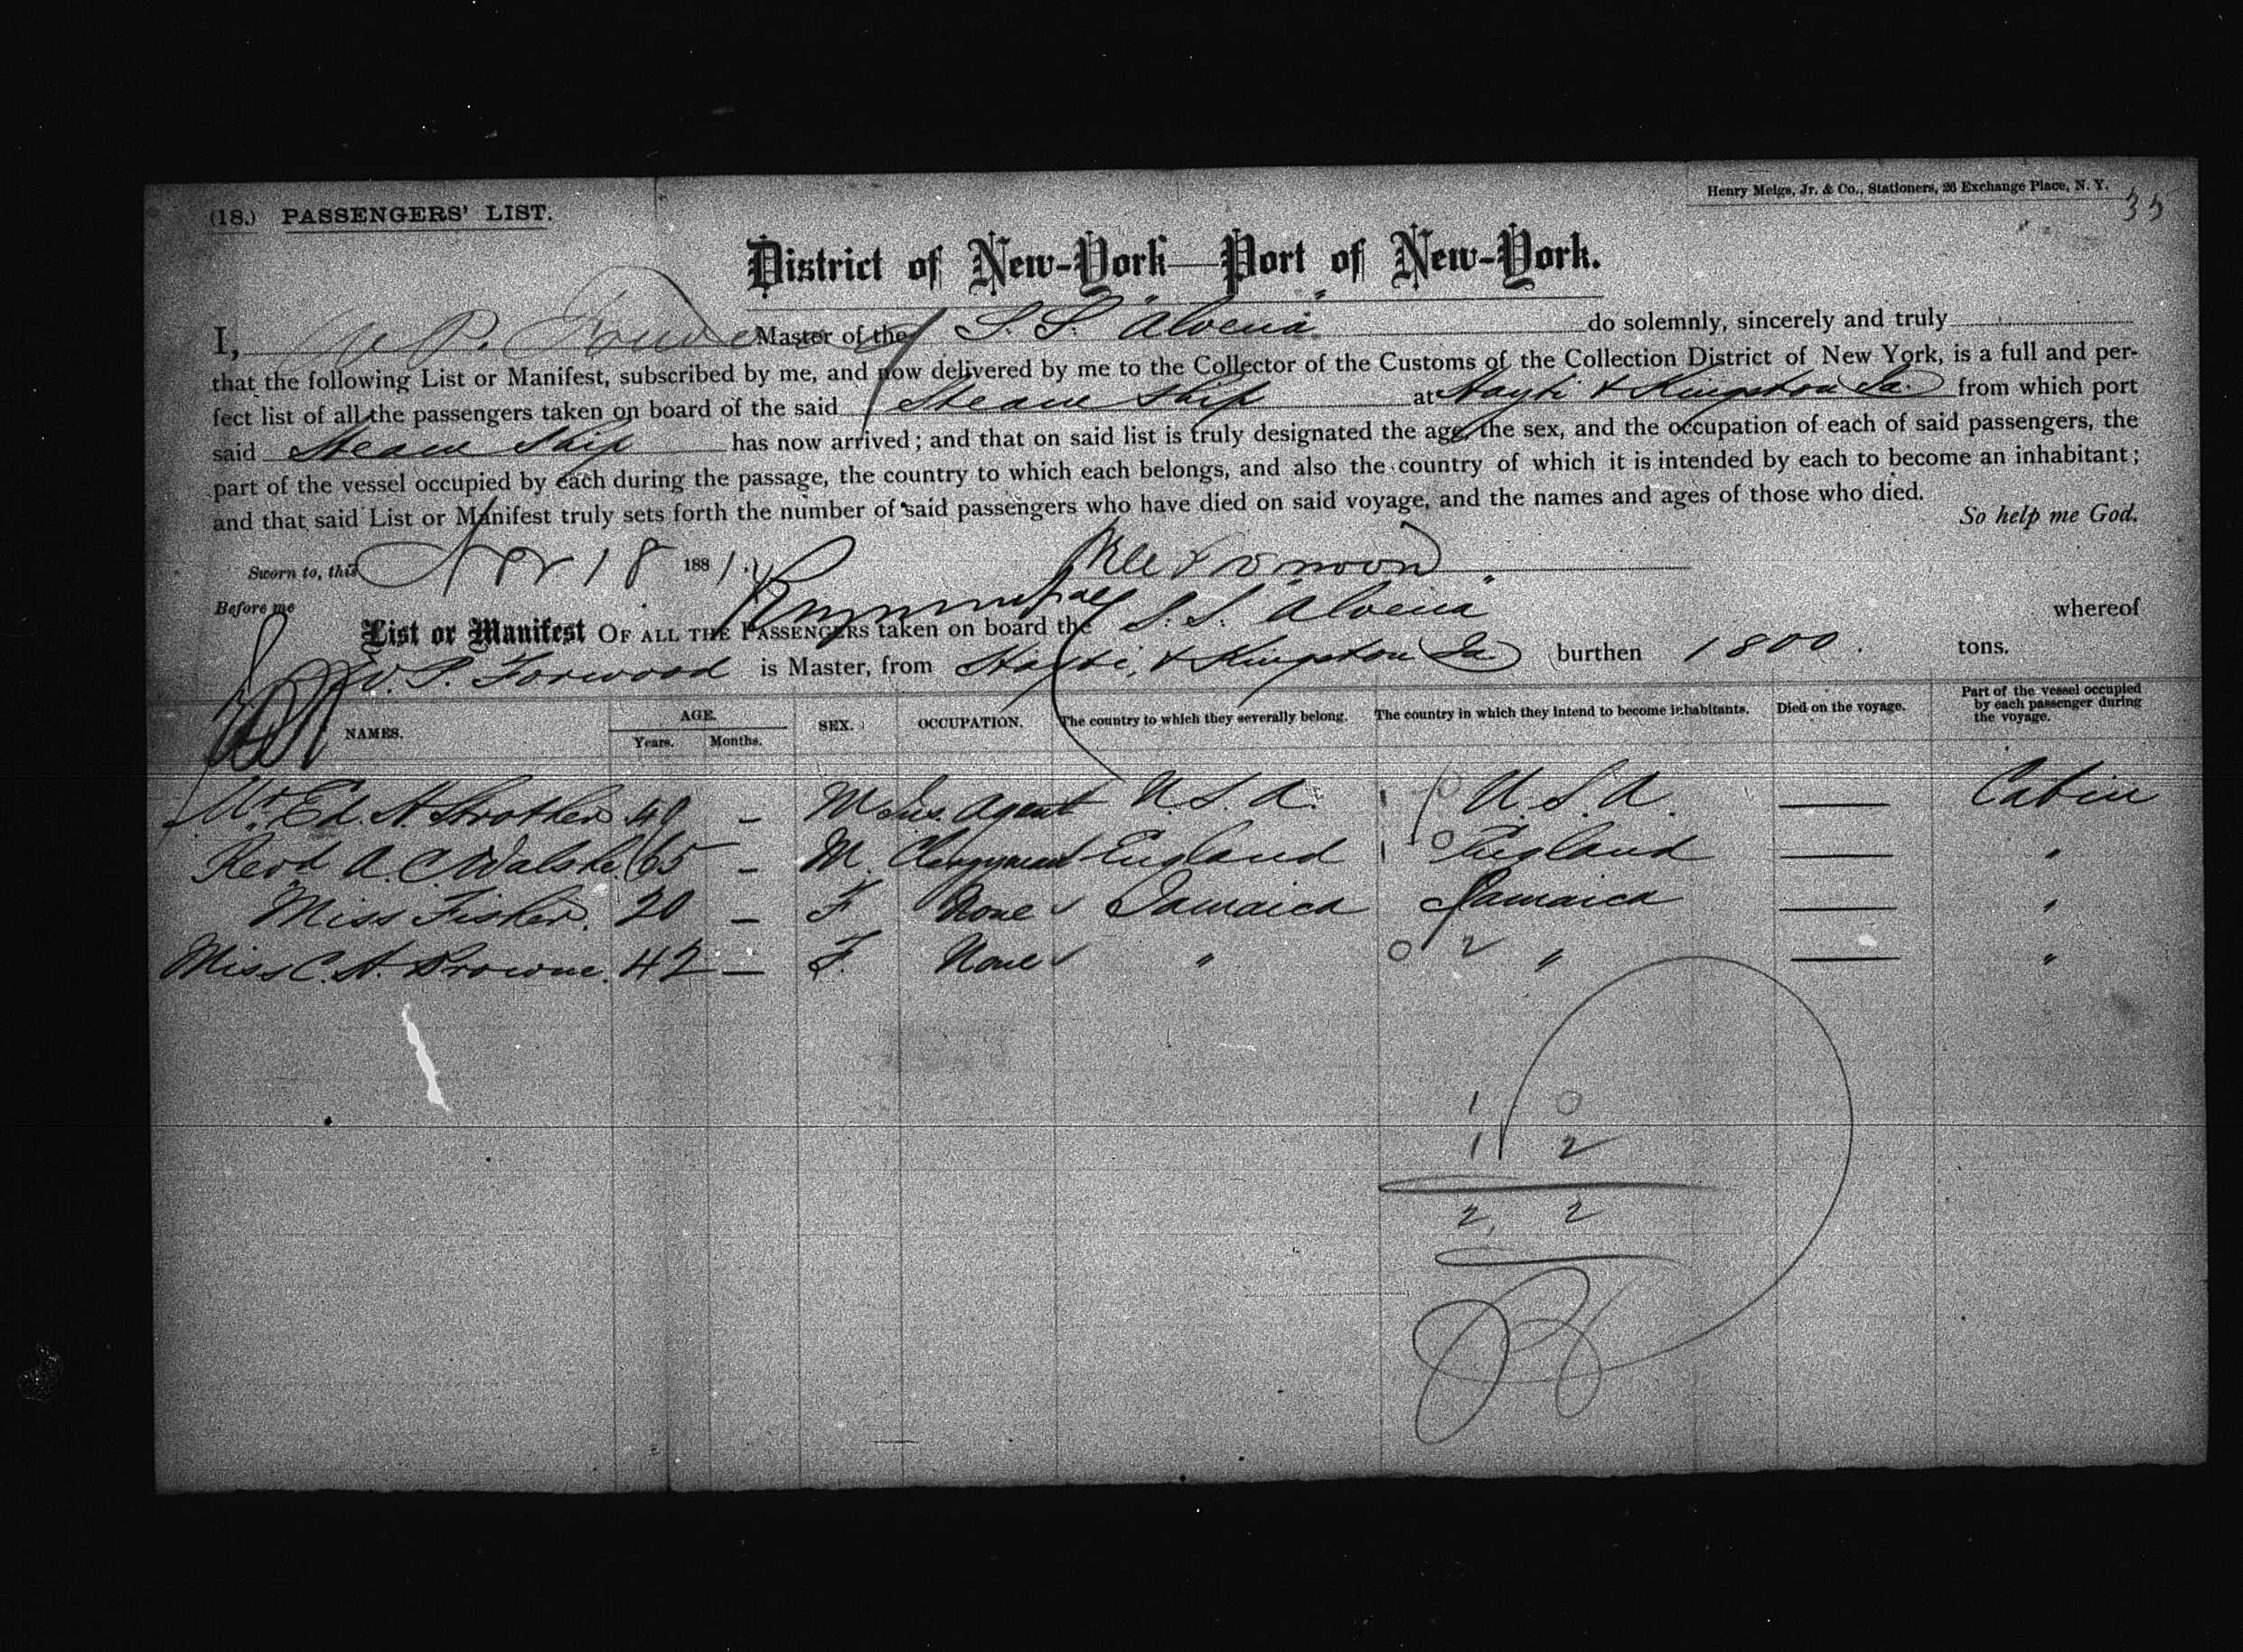 (18.) PASSENGERS' LIST.
Henry Meigs, Jr. & Co., Stationers, 26 Exchange Place, N. Y.
District of New-York—Port of New-York.
I, W P. Master of the S. S. "Alvena" do solemnly, sincerely and truly
that the following List or Manifest, subscribed by me, and now delivered by me to the Collector of the Customs of the Collection District of New York, is a full and per-
fect list of all the passengers taken on board of the said Steam Ship at Hayti & Kingston Ja. from which port
said Steam Ship has now arrived; and that on said list is truly designated the age, the sex, and the occupation of each of said passengers, the
part of the vessel occupied by each during the passage, the country to which each belongs, and also the country of which it is intended by each to become an inhabitant;
and that said List or Manifest truly sets forth the number of said passengers who have died on said voyage, and the names and ages of those who died.
So help me God.
Sworn to, this 18 1881.
Before me
List or Manifest OF ALL THE PASSENGERS taken on board the S. S. "Alvena" whereof
W. P. Forwood is Master, from Hayti, & Kingston Ja. burthen 1800. tons.
NAMES. AGE. Years. Months. SEX. OCCUPATION. The country to which they severally belong. The country in which they intend to become inhabitants. Died on the voyage. Part of the vessel occupied by each passenger during the voyage.
Mr. Ed. H. Strother 40 – M Ins. Agent U. S. A. 1 0 U. S. A. — Cabin
Revd A. C. Walshe 65 – M. Clergyman England 1 0 England — "
Miss Fisher. 20 – F None Jamaica Jamaica — "
Miss C. A. Browne. 42 – F. None " 0 2 " — "
1 0
1 2
2 2